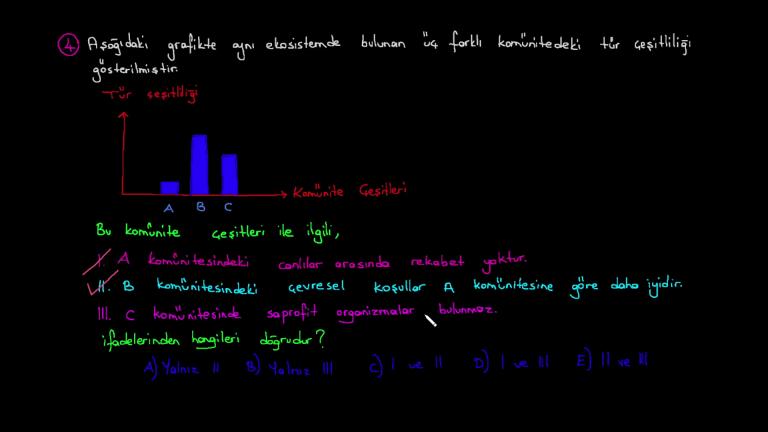 4 Aşağıdaki grafikte aynı ekosistemde bulunan üç farklı komünitedeki tür çeşitliliği
gösterilmiştir.
Tür çeşitliliği
Komünite Çeşitleri
A B C
Bu komünite çeşitleri ile ilgili,
I. A komünitesindeki canlılar arasında rekabet yoktur.
II. B komünitesindeki çevresel koşullar A komünitesine göre daha iyidir.
III. C komünitesinde saprofit organizmalar bulunmaz.
ifadelerinden hangileri doğrudur?
A) Yalnız II B) Yalnız III C) I ve II D) I ve III E) II ve III